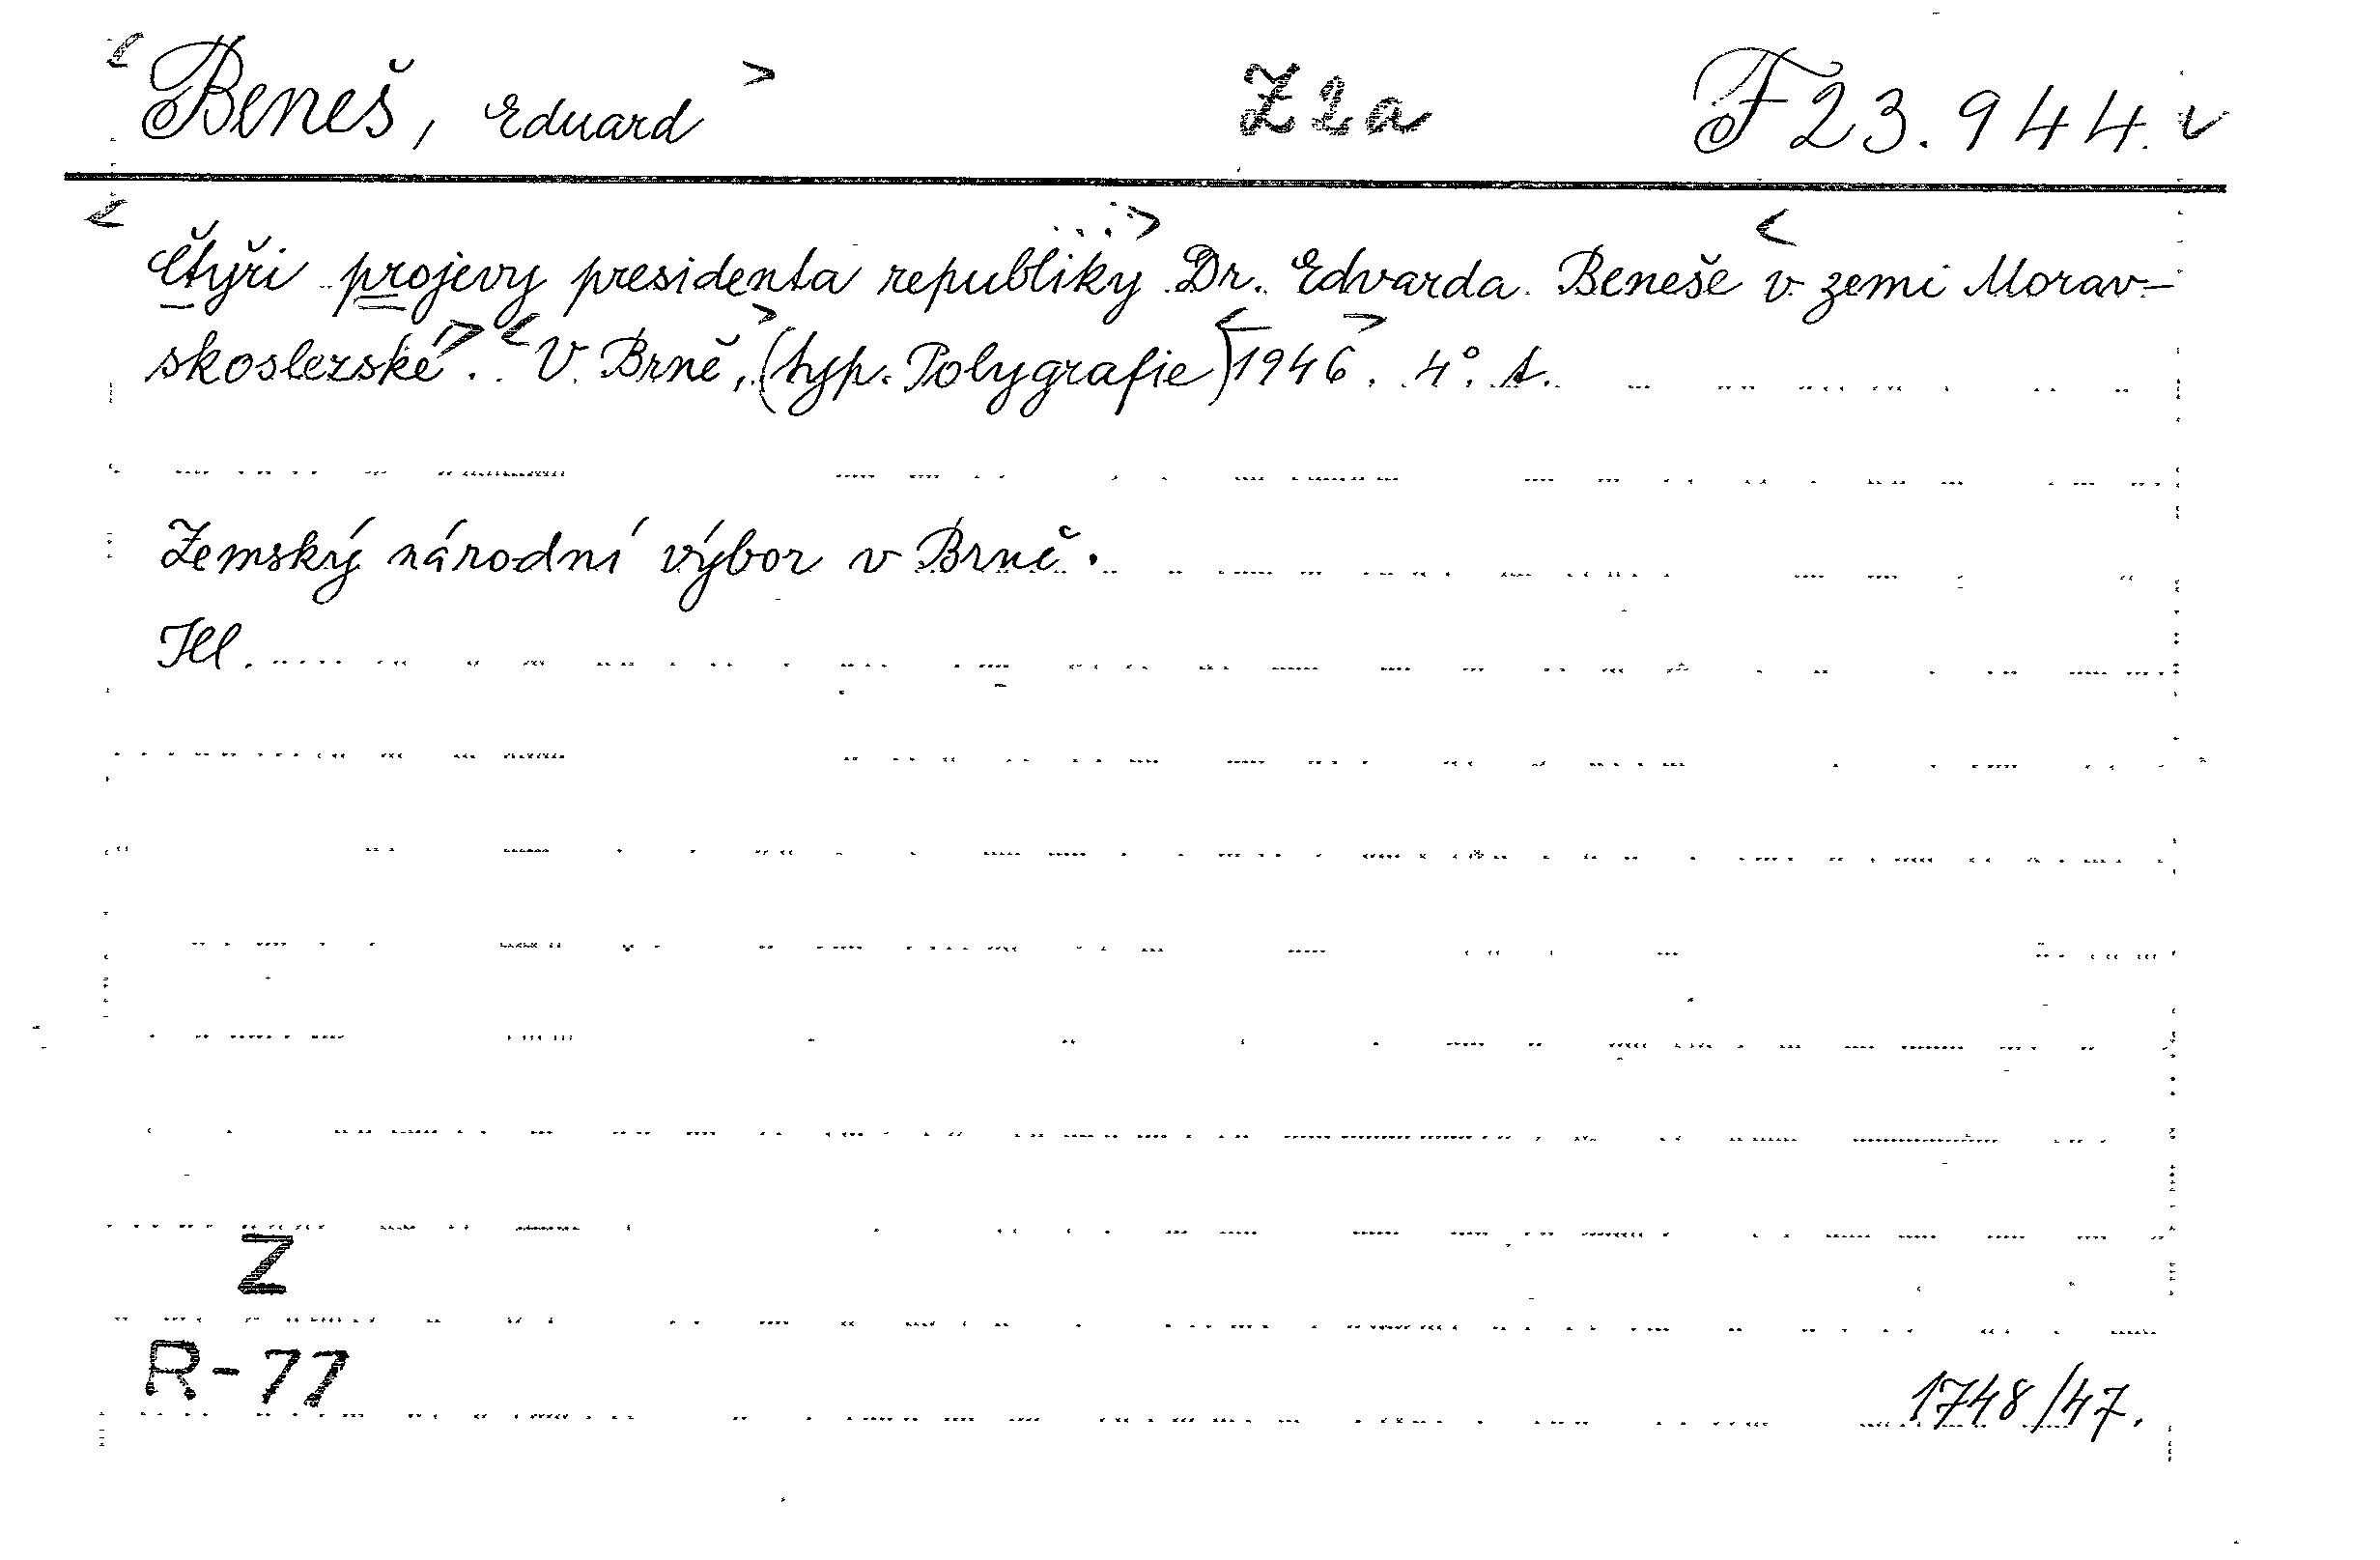 < Beneš, Eduard > Z2a F 23.944. v
< Čtyři projevy presidenta republiky ...> Dr. Edvarda Beneše < v zemi Morav-
skoslezské >. < V Brně, > (typ. Polygrafie) < 1946 >. 4°. A.
Zemský národní výbor v Brně.
Ill.
Z
R-77
1748/47.